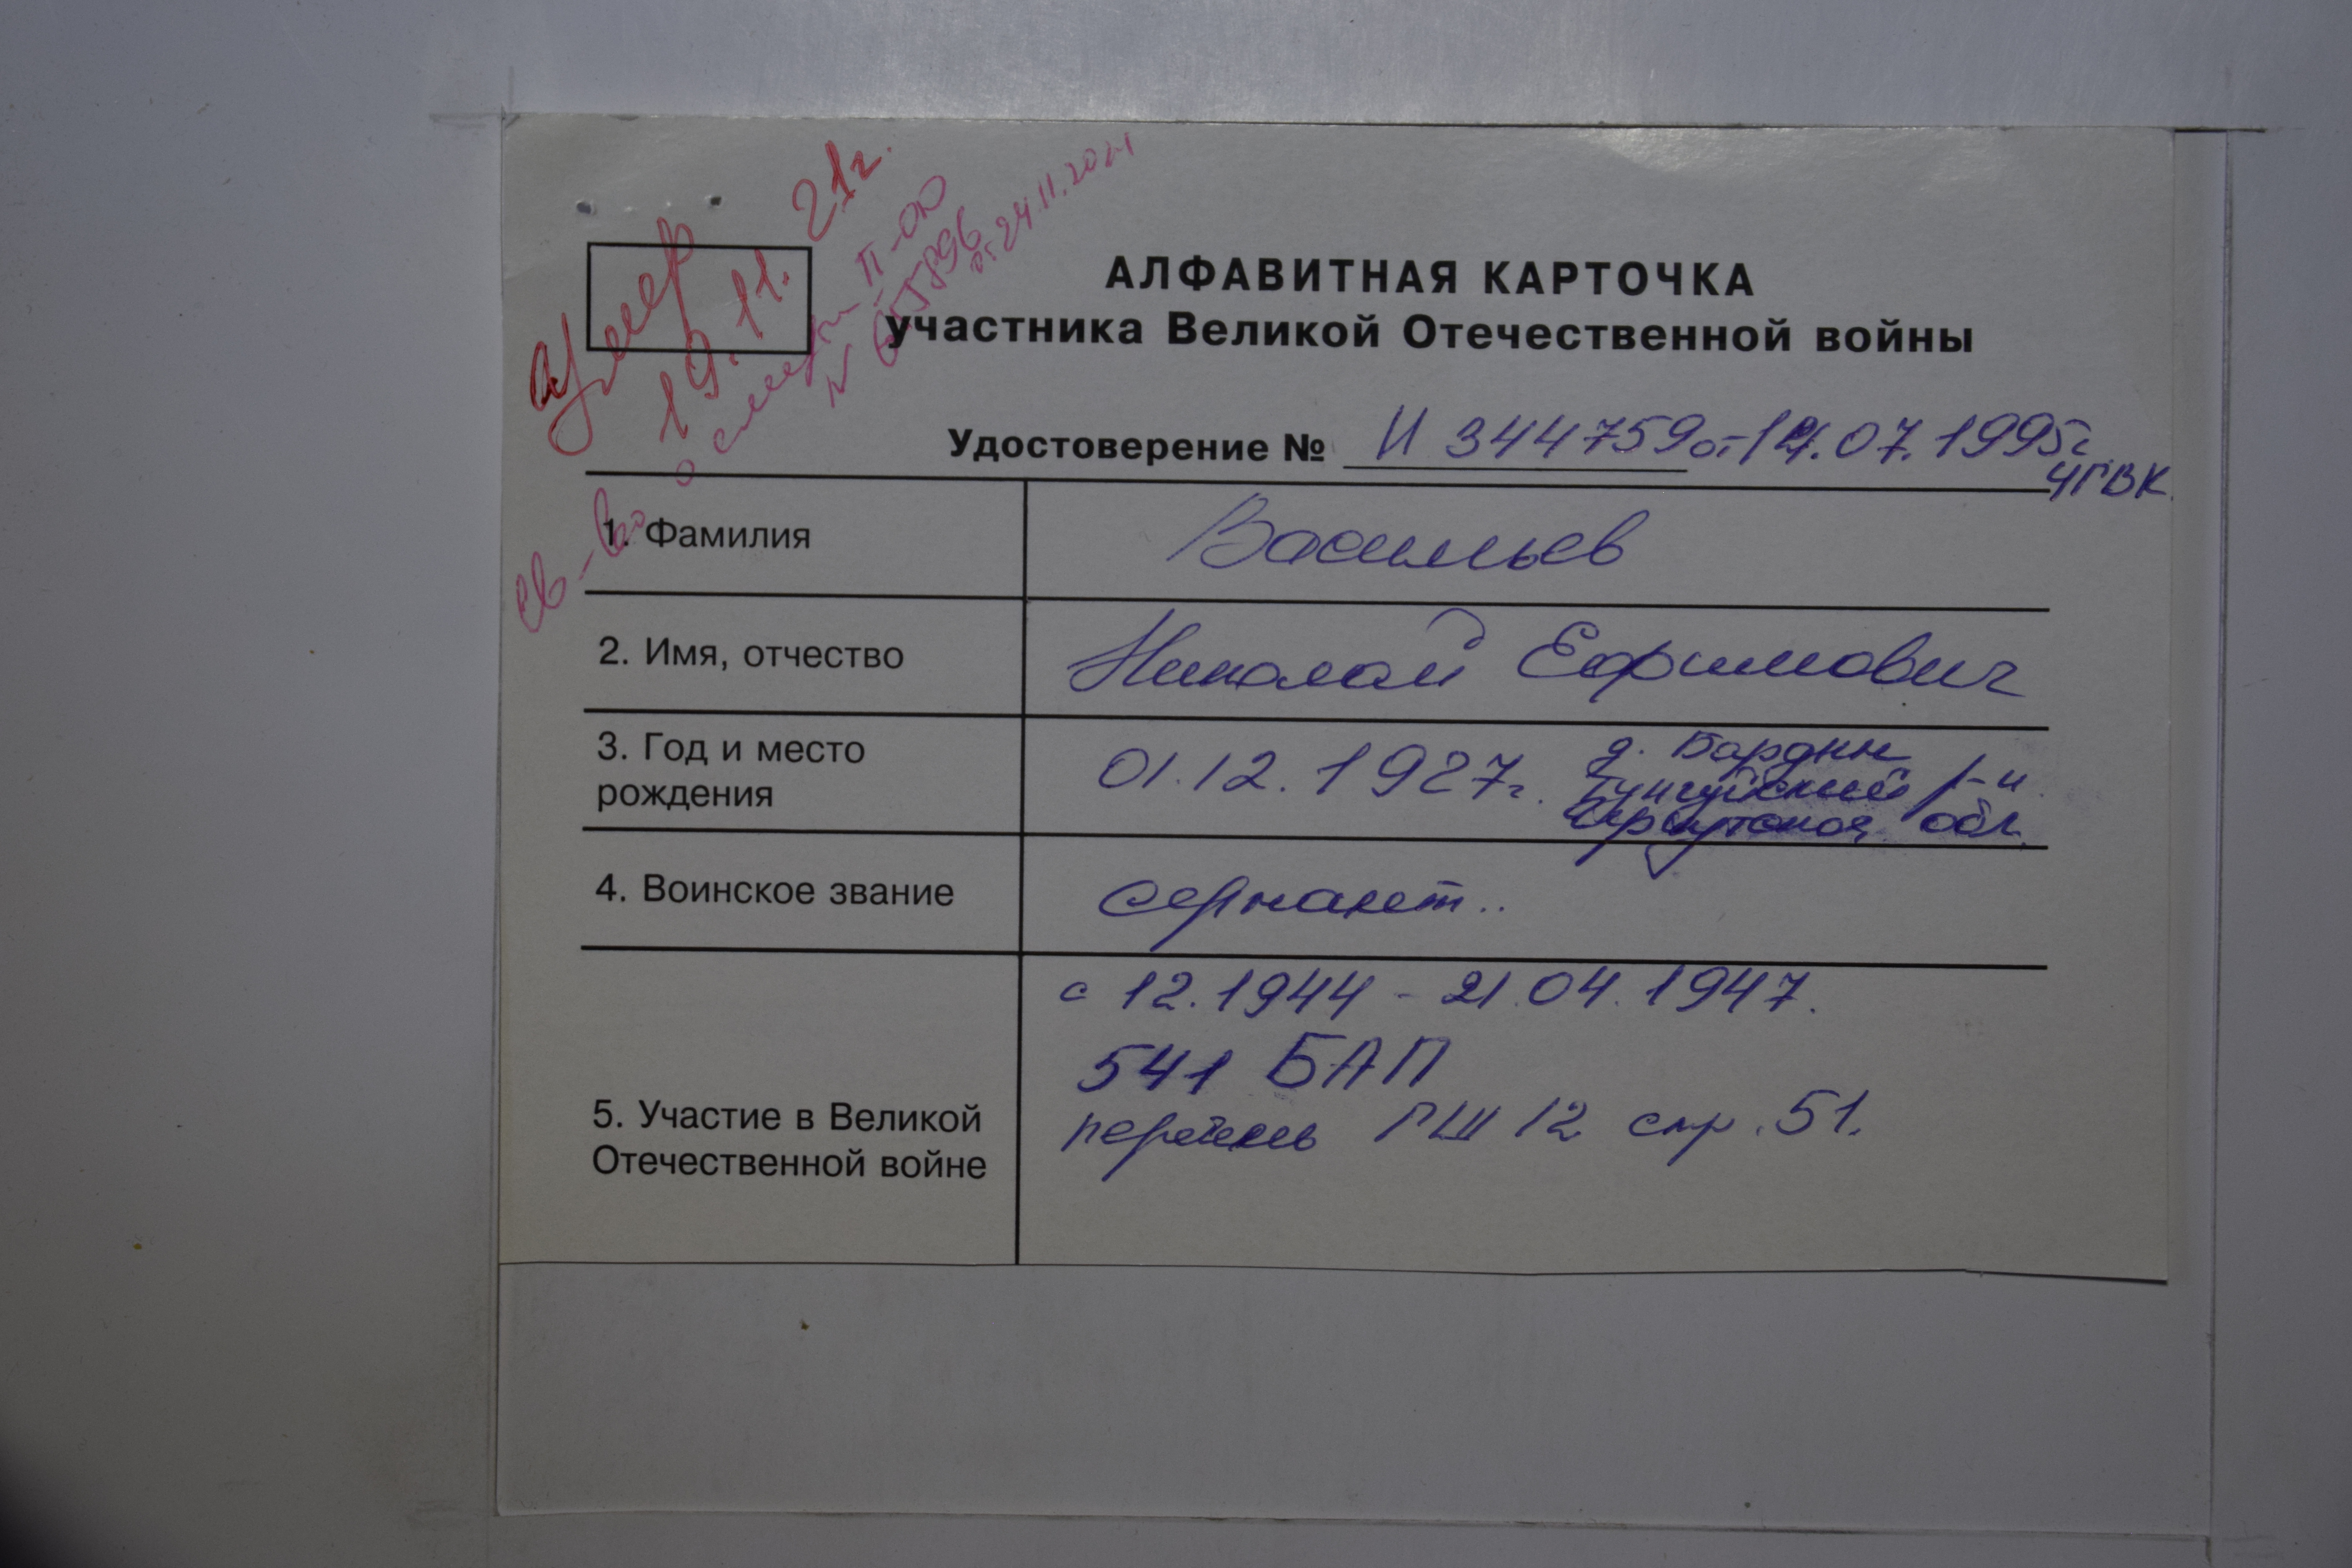 умер 19.11.21г.
св-во о смерти II-СЮ
от 24.11.2021
АЛФАВИТНАЯ КАРТОЧКА
участника Великой Отечественной войны
Удостоверение № И 344759 от 14.07.1995г
ЧГВК
1. Фамилия Васильев
2. Имя, отчество Николай Ефимович
3. Год и место рождения 01.12.1927г.
д. Бардин
Тунгуйский р-н
Иркутская обл.
4. Воинское звание сержант..
с 12.1944 - 21.04.1947.
541 БАП
5. Участие в Великой
Отечественной войне
перечень ГШ 12 стр. 51.